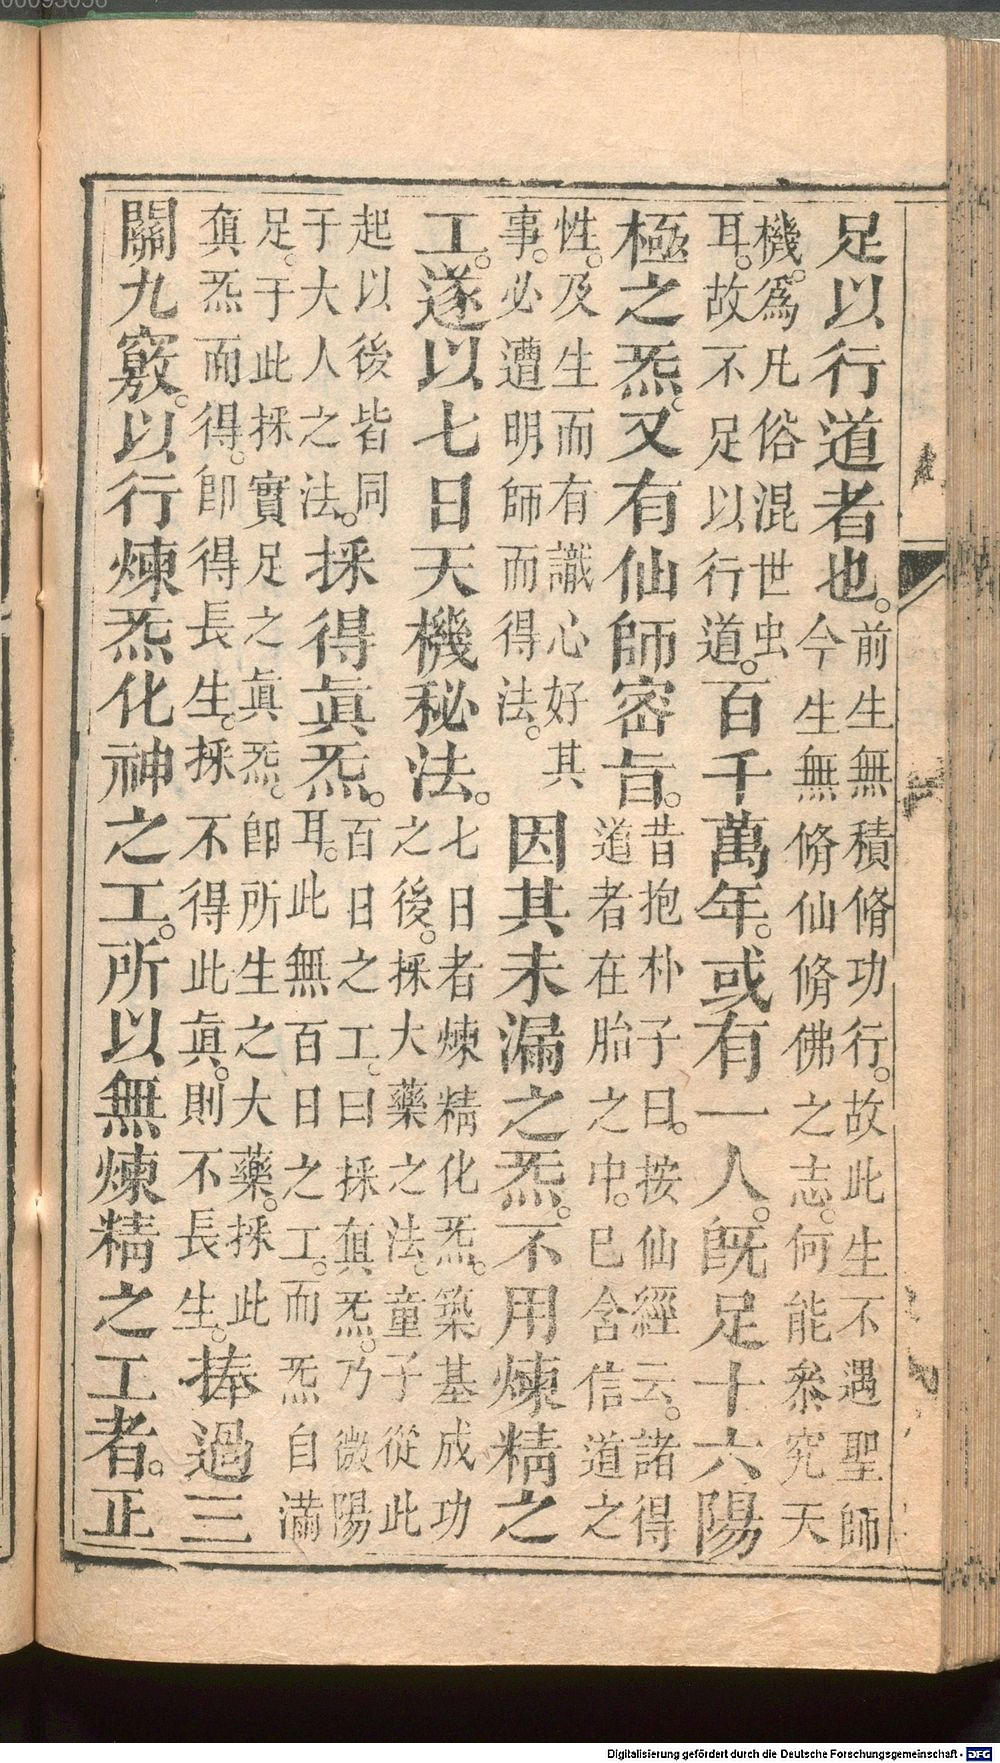 足以行道者也。前生無積脩功行。故此生不遇聖師
今生無脩仙脩佛之志。何能叅究天
機。爲凡俗混世虫
耳。故不足以行道。百千萬年。或有一人。旣足十六陽
極之炁。又有仙師密旨。昔抱朴子曰。按仙經云。諸得
道者在胎之中。已含信道之
性。及生而有識心好其
事。必遭明師而得法。因其未漏之炁。不用煉精之
工。遂以七日天機秘法。七日者煉精化炁。築基成功
之後。採大藥之法。童子從此
起以後皆同
于大人之法。採得眞炁。百日之工。曰採眞炁。乃微陽
耳。此無百日之工。而炁自滿
足。于此採實足之眞炁。卽所生之大藥。採此
眞炁而得。卽得長生。採不得此眞。則不長生。捧過三
關九竅。以行煉炁化神之工。所以無煉精之工者。正
Digitalisierung gefördert durch die Deutsche Forschungsgemeinschaft - DFG